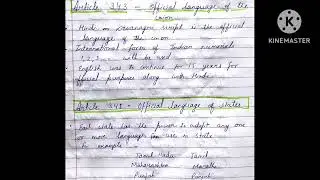 Article 343 - Official language of the
union
• Hindi in Devanagari script is the official
language of the union
• International form of Indian numerals
1,2,3... will be used
• English was to continue for 15 years for
official purposes along with Hindi
Article 345 - Official language of states
• Each state has the power to adopt any one
or more languages for use in state
for example
Tamil Nadu Tamil
Maharashtra Marathi
Punjab Punjabi
MADE WITH
KINEMASTER